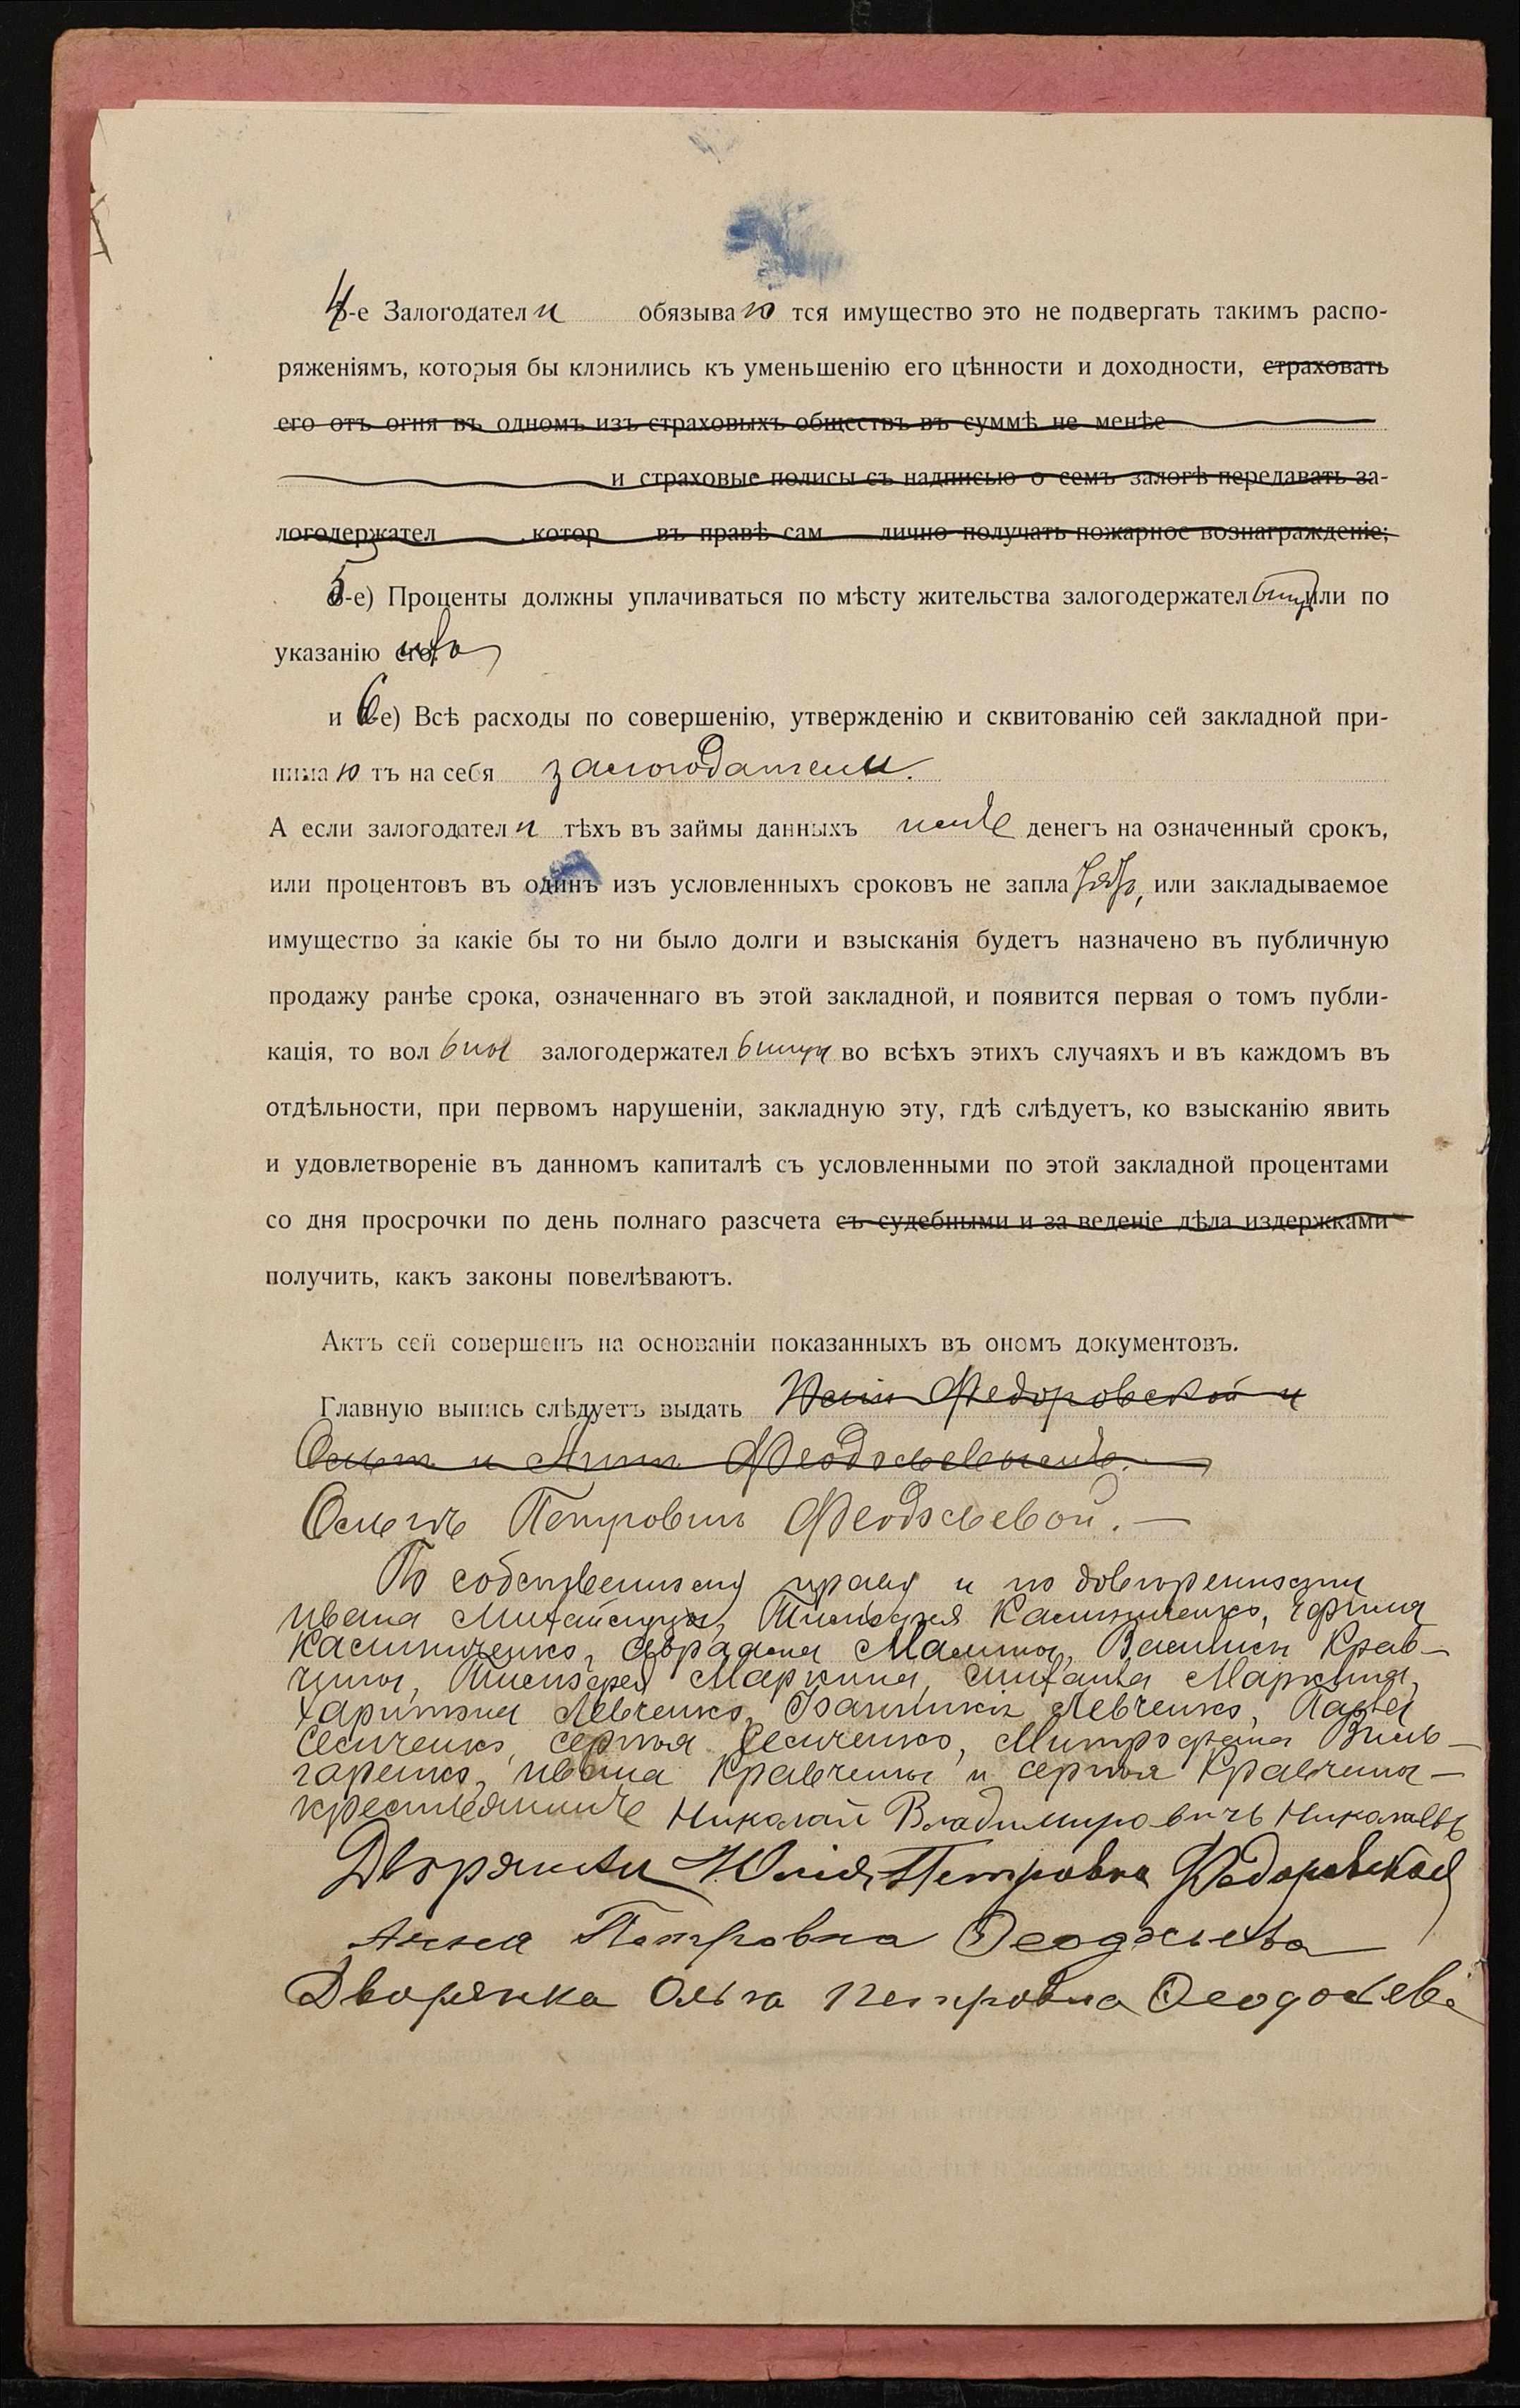 4-е Залогодатели обязываются имущество это не подвергать такимъ распо-
ряженіямъ, которыя бы клонились къ уменьшенію его цѣнности и доходности, страховать
его отъ огня въ одномъ изъ страховыхъ обществъ въ суммѣ не менѣе
и страховые полисы съ надписью о семъ залогѣ передавать за-
логодержател котор въ правѣ сам лично получать пожарное вознагражденіе;
5-е) Проценты должны уплачиваться по мѣсту жительства залогодержательницъ или по
указанію ихъ
и 6-е) Всѣ расходы по совершенію, утвержденію и сквитованію сей закладной при-
нимаютъ на себя залогодатели.
А если залогодатели тѣхъ въ займы данныхъ имъ денегъ на означенный срокъ,
или процентовъ въ одинъ изъ условленныхъ сроковъ не заплатятъ, или закладываемое
имущество за какіе бы то ни было долги и взысканія будетъ назначено въ публичную
продажу ранѣе срока, означеннаго въ этой закладной, и появится первая о томъ публи-
кація, то вольны залогодержательницы во всѣхъ этихъ случаяхъ и въ каждомъ въ
отдѣльности, при первомъ нарушеніи, закладную эту, гдѣ слѣдуетъ, ко взысканію явить
и удовлетвореніе въ данномъ капиталѣ съ условленными по этой закладной процентами
со дня просрочки по день полнаго разсчета съ судебными и за веденіе дѣла издержками
получить, какъ законы повелѣваютъ.
Актъ сей совершенъ на основаніи показанныхъ въ ономъ документовъ.
Главную выпись слѣдуетъ выдать Юліи Федоровской и
Ольгѣ и Аннѣ Феодосьевымъ.
Ольгѣ Петровнѣ Феодосьевой. —
По собственному праву и по довѣренности
Ивана Тимофея Калиниченко, Ефима
Калиниченко, Абрама Малины, Василія Крав-
чины, Тимофея Маркина, Михаила Маркина,
Харитона Левченко, Іоанникія Левченко, Павла
Селиченко, Сергѣя Селиченко, Митрофана
Ивана Кравчины и Сергѣя Кравчины —
Николай Владимировичъ Николаевъ
Дворянка Юлія Петровна Федоровская
Анна Петровна Феодосьева
Дворянка Ольга Петровна Феодосьева